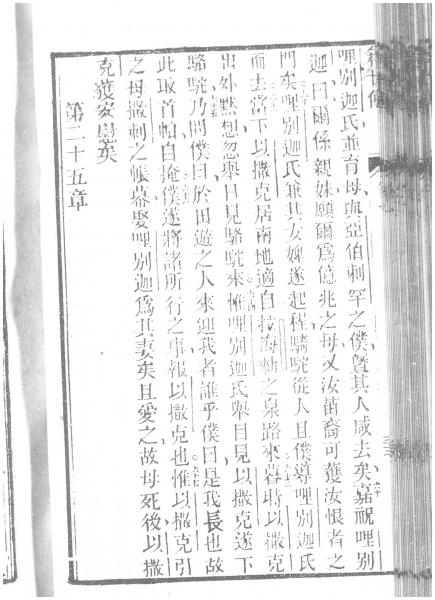 哩别迦氏並育母與亞伯刺罕之僕暨其人咸去矣嘉祝哩别
迦曰爾係親妹願爾爲億兆之母又汝苗裔可獲汝恨者之
門矣哩别迦氏兼其女婢遂起程騎駝從人且僕導哩别迦氏
而去當下以撒克居南地適自拉海 之泉路來暮時以撒克
出外默想忽舉目見駱駝來惟哩别迦氏舉目見以撒克遂下
駱駝乃問僕曰於田遊之人來迎我者誰乎僕曰是我長也故
此取首帕自掩僕遂將諸所行之事報以撒克也惟以撒克引
之母撒刺之帳幕娶哩别迦爲其妻矣且愛之故母死後以撒
克獲安慰矣
第二十五章